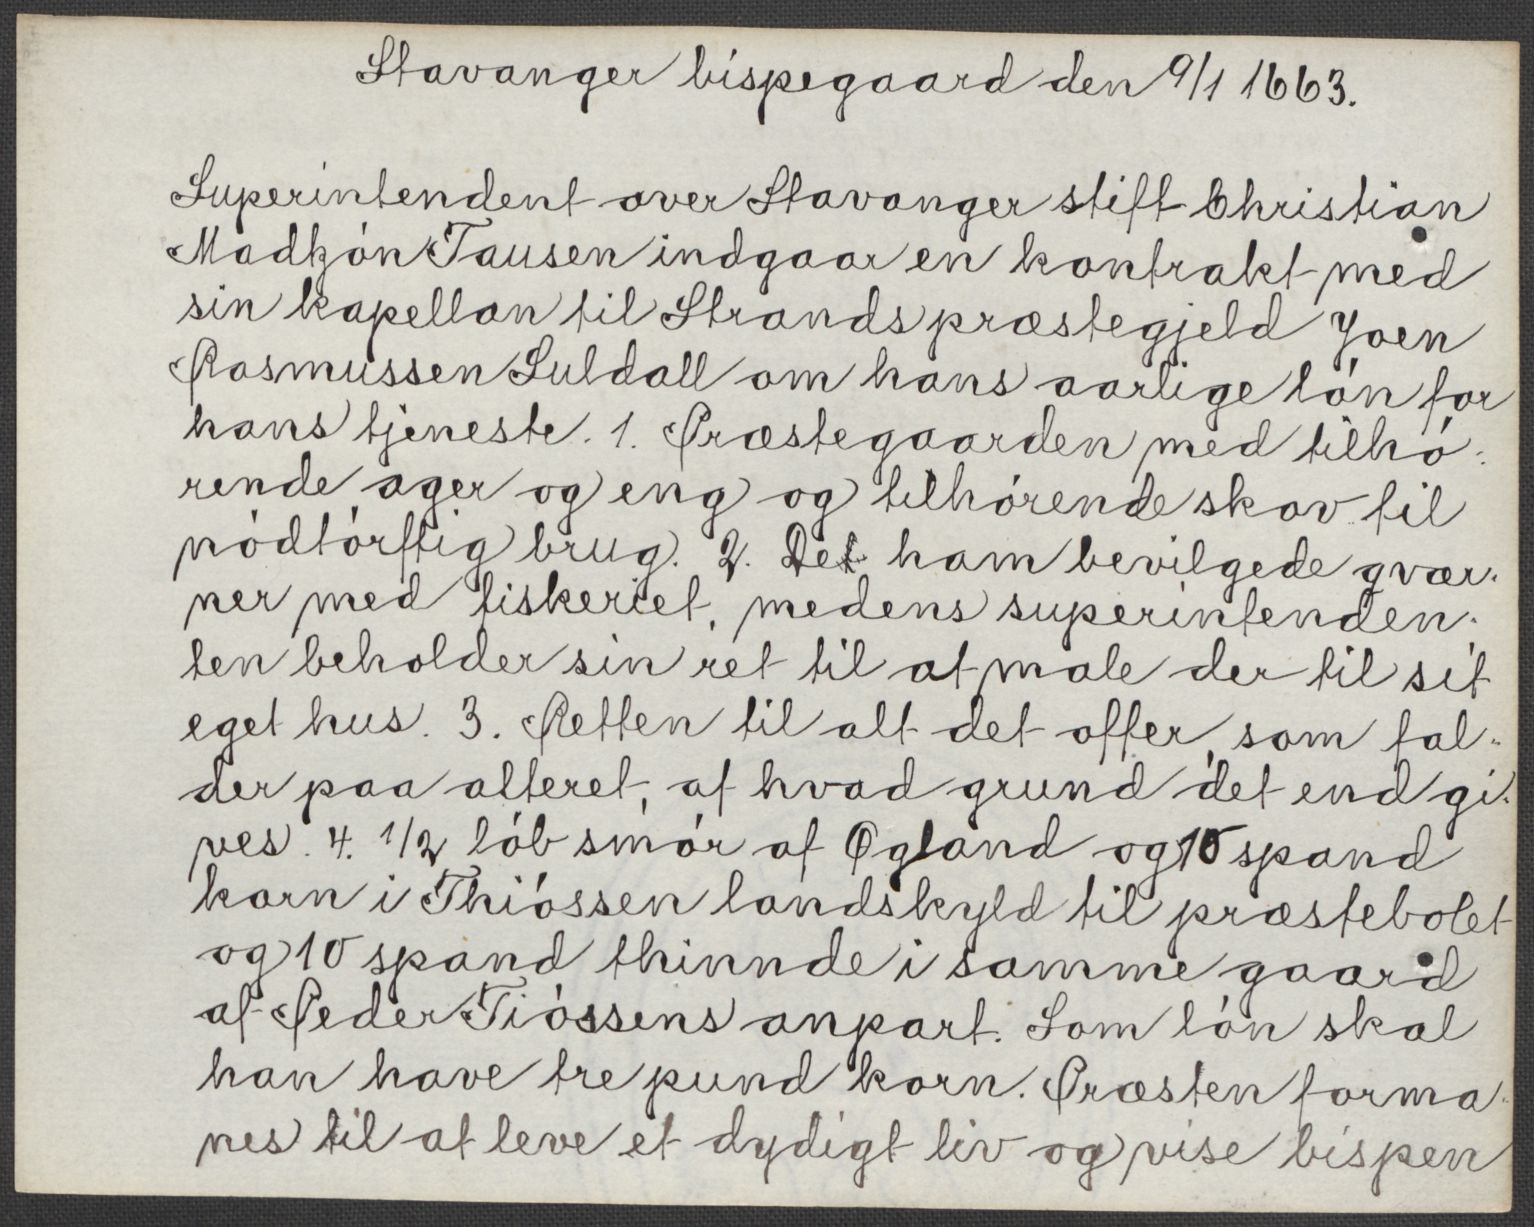 Stavanger bispegaard den 9/1 1663.
Superintendent over Stavanger stift Christian
Madhzón Tausen indgaar en kontrakt med
sin kapellan til Strands præstegjeld Joen
Rasmussen Suldall om hans aarlige lón for
hans tjeneste. 1. Præstegaarden med tilhó-
rende ager og eng og tilhórende skov til
nódtórftig brug. 2. Det ham bevilgede qvær-
ner med fiskeriet, medens superintenden-
ten beholder sin ret til at male der til sit
eget hus. 3. Retten til alt det offer, som fal-
der paa alteret, af hvad grund det end gi-
ves. 4. 1/2 lób smór af Øgland og 10 spand
korn i Thióssen landskyld til præstebolet
og 10 spand thinnde i samme gaard
af Peder Tióssens anpart. Som lón skal
han have tre pund korn. Præsten forma-
nes til at leve et dydigt liv og vise bispen